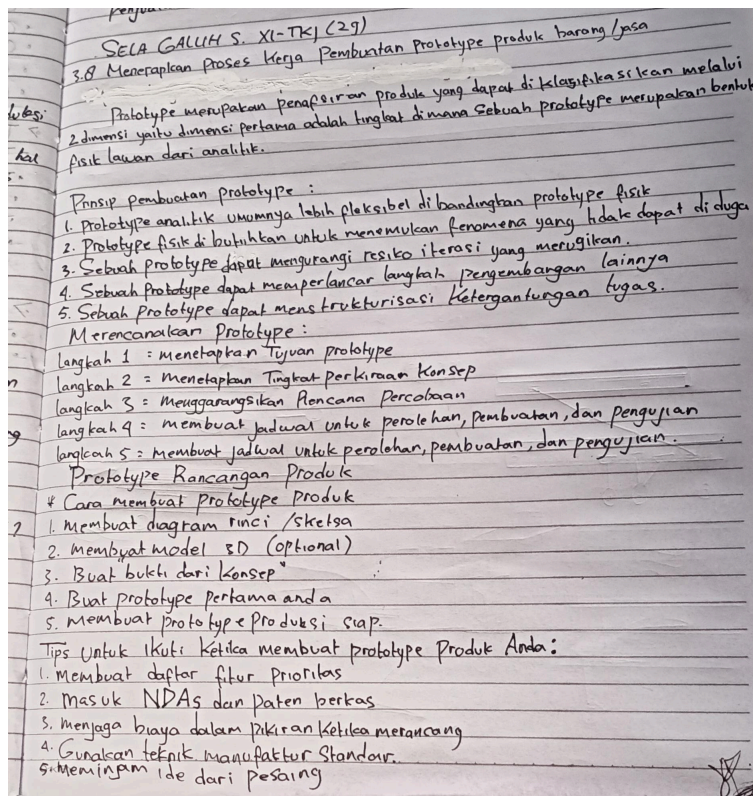 SELA GALUH S. XI-TKJ (29)
3.8 Menerapkan Proses Kerja Pembuatan Prototype produk barang/jasa
Prototype merupakan penafsiran produk yang dapat di klasifikasikan melalui
2 dimensi yaitu dimensi pertama adalah tingkat dimana sebuah prototype merupakan bentuk
fisik lawan dari analitik.
Prinsip pembuatan prototype :
1. Prototype analitik umumnya lebih fleksibel dibandingkan prototype fisik
2. Prototype fisik dibutuhkan untuk menemukan fenomena yang tidak dapat di duga
3. Sebuah prototype dapat mengurangi resiko iterasi yang merugikan.
4. Sebuah Prototype dapat memperlancar langkah pengembangan lainnya
5. Sebuah Prototype dapat menstrukturisasi ketergantungan tugas.
Merencanakan Prototype :
langkah 1 : menetapkan Tujuan prototype
langkah 2 = menetapkan Tingkat Perkiraan Konsep
langkah 3 = Menggarangsikan Rencana Percobaan
langkah 4 : membuat jadwal untuk perolehan, pembuatan, dan pengujian
langkah 5 : membuat jadwal untuk perolehan, pembuatan, dan pengujian.
Prototype Rancangan Produk
* Cara membuat prototype produk
1. Membuat diagram rinci /sketsa
2. membuat model 3D (optional)
3. Buat bukti dari konsep"
4. Buat prototype pertama anda
5. membuat prototype produksi siap.
Tips untuk Ikuti Ketika membuat prototype Produk Anda :
1. membuat daftar fitur Prioritas
2. masuk NDAs dan Paten berkas
3. menjaga biaya dalam pikiran ketika merancang
4. Gunakan teknik manufaktur Standar.
5. Meminjam ide dari pesaing